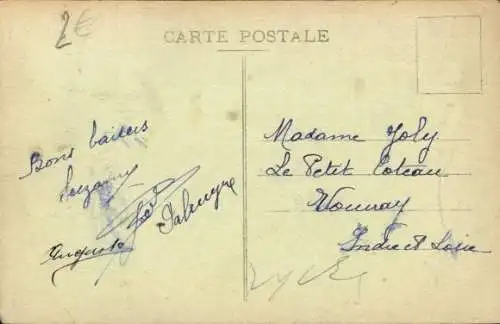 2€
CARTE POSTALE
Bons baisers
Suzanne
Auguste
Madame Joly
Le Petit Coteau
Vouvray
Indre et Loire